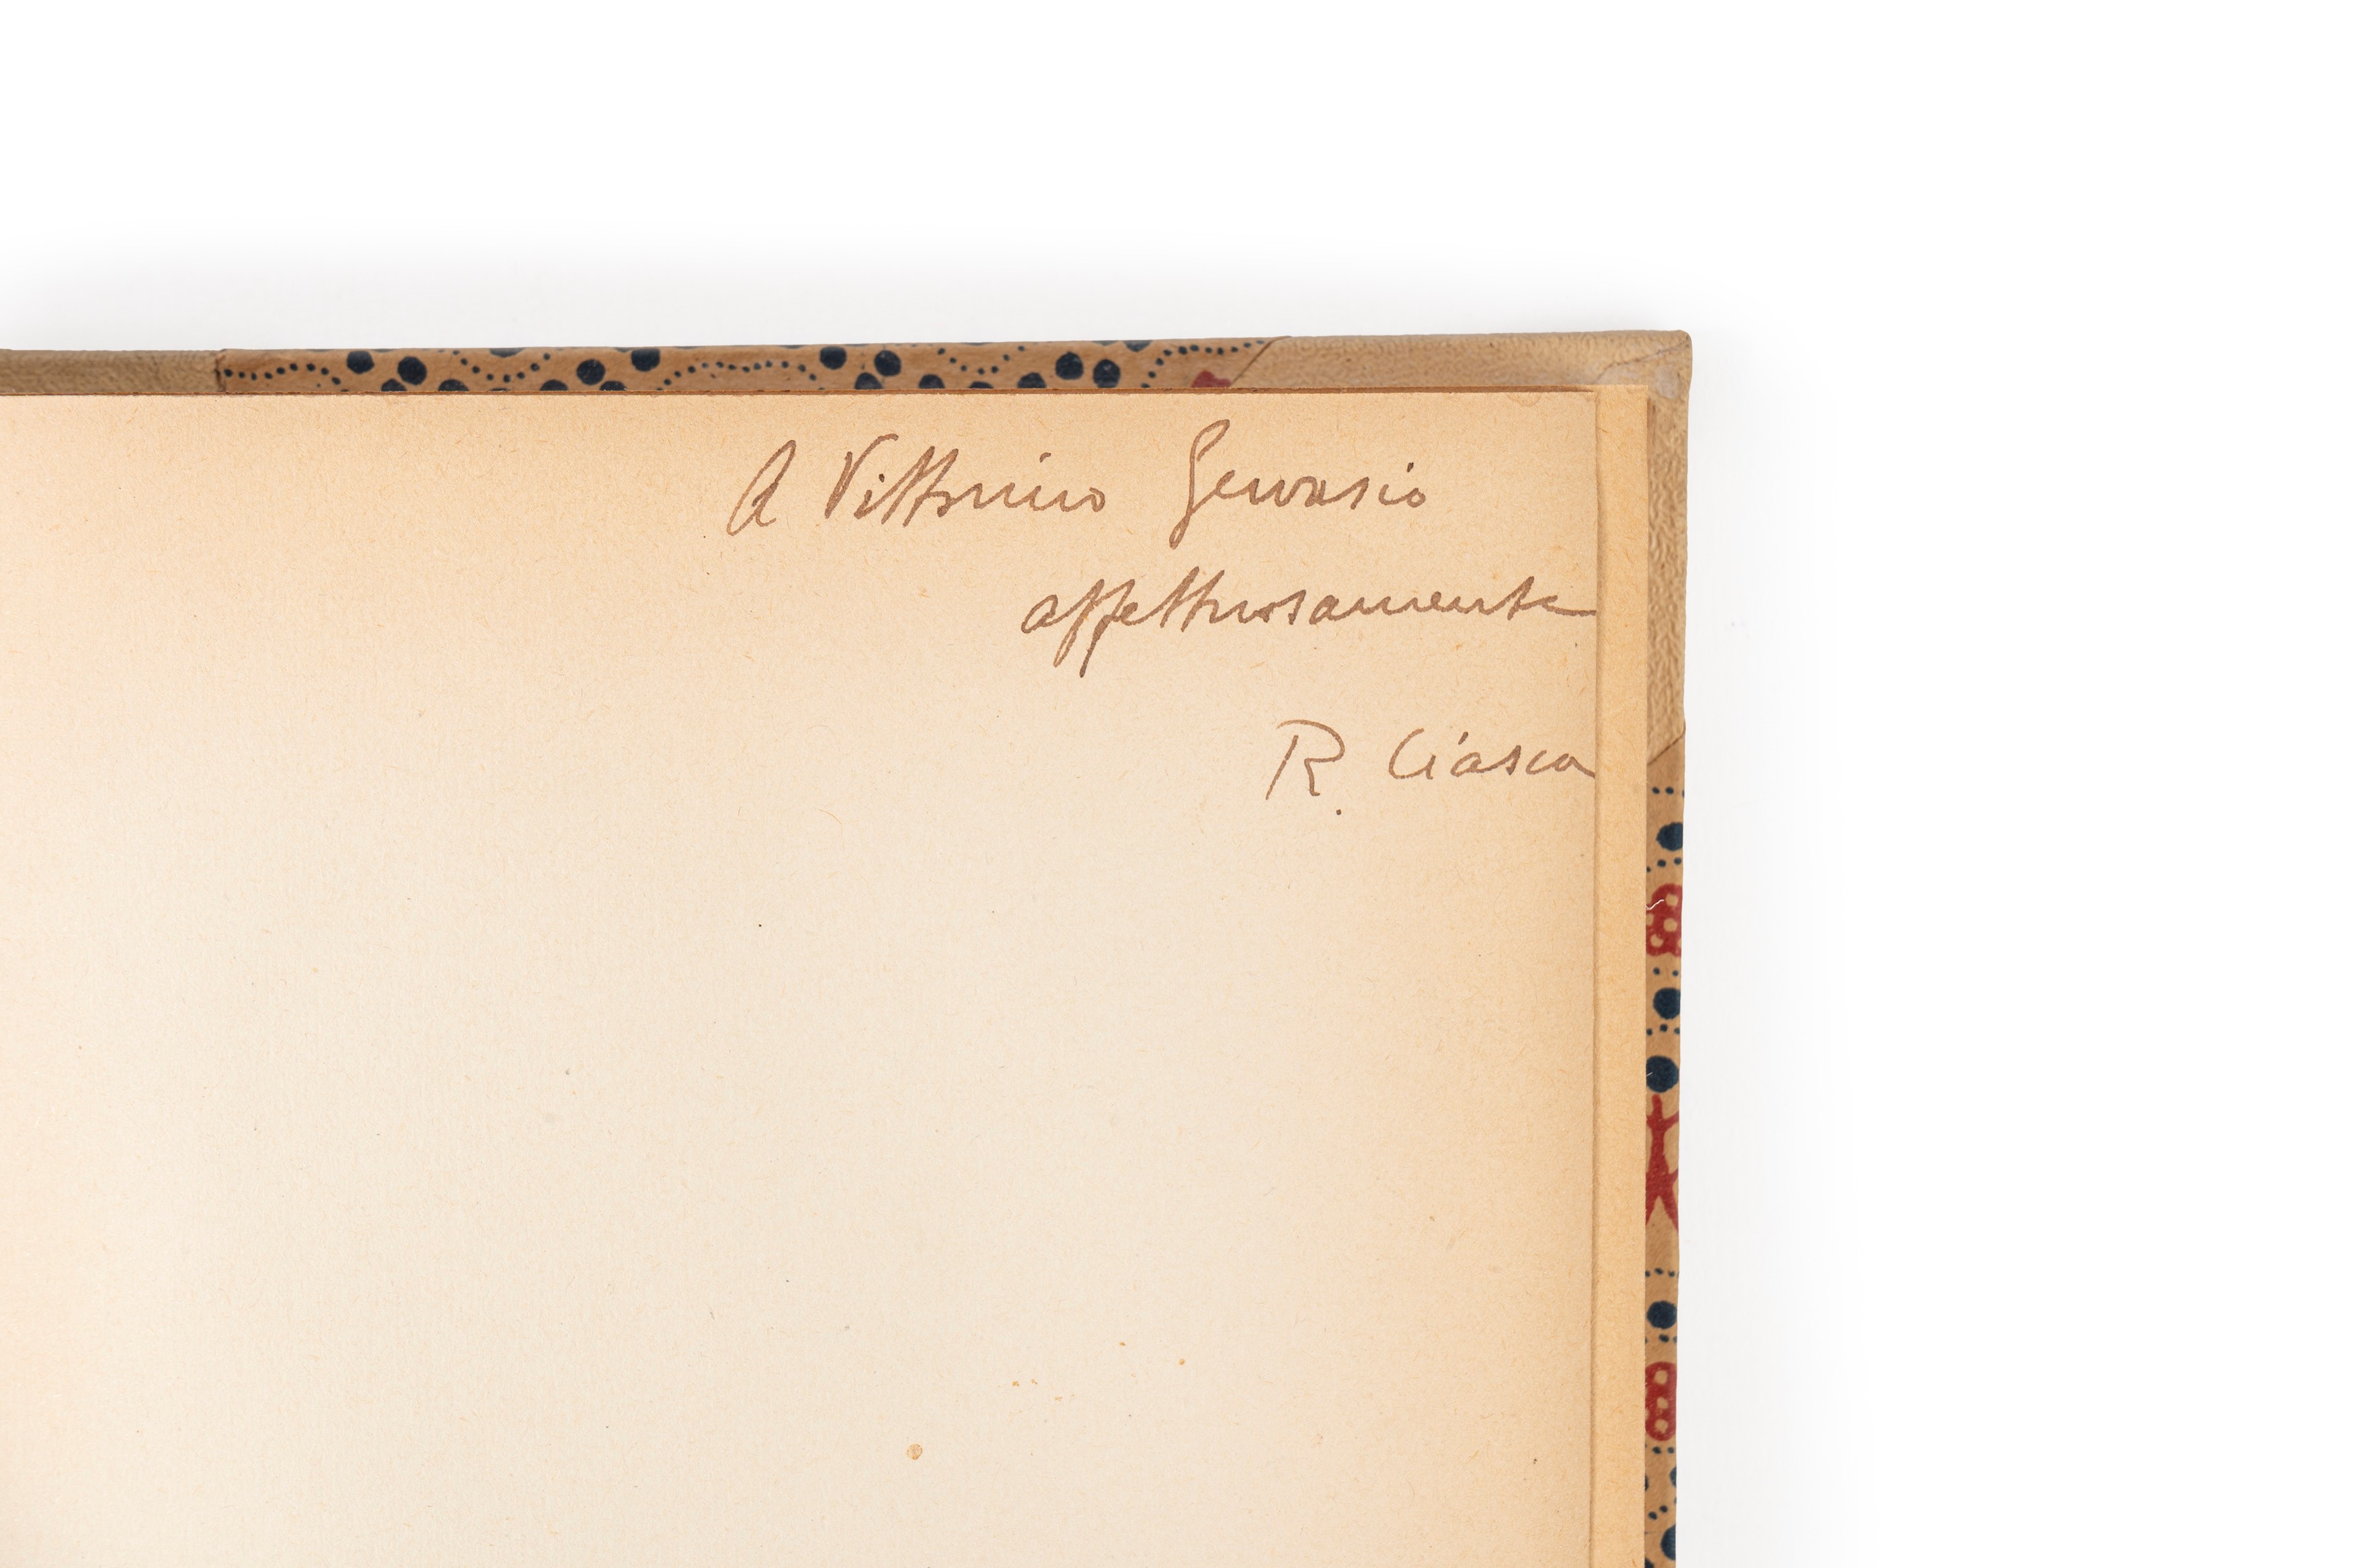 A Vittorino Gervasio
affettuosamente
R. Ciasca